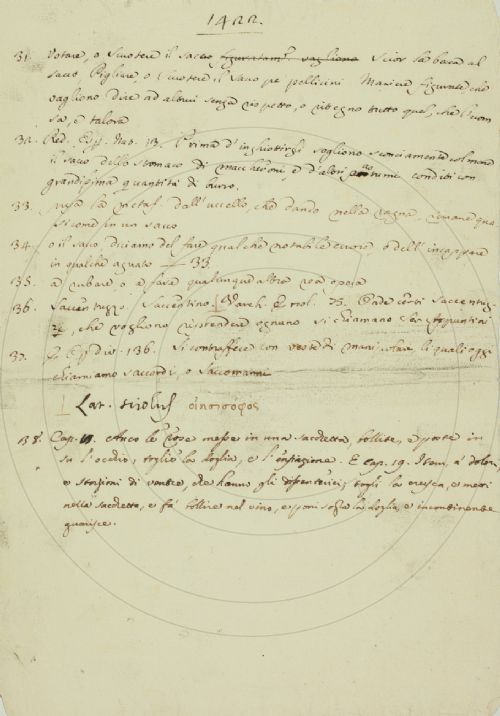 1422.
31. Votare, o Scuotere il sacco figuratam.e vagliono Scior la bocca al
sacco, Pigliare, o Scuotere il sacco pe pellicini Maniere figurate che
vagliono dire ad altrui senza rispetto, o ritegno tutto quel, che l'uom
sa, e talora
32. Red. Esp. Nat. 13. Prima d'inghiottirsi sogliono sconciamente colmare
il sacco dello stomaco di maccheroni, e d'altri conditi con
grandissima quantità di burro.
33. presa la metaf. dall'uccello, che dando nella ragna, rimane qua-
si come in un sacco
34. o il sacco, diciamo del fare qualche notabile errore, o dell'incappare
in qualche aguato 33.
35. a rubare, o a fare qualunque altra rea opera
36. Saccentuzzo. Saccentino. Varch. Ercol. 75. Onde certi Saccentuz-
zi, che vogliono riprendere ognuno si chiamano Ser Appuntini
37. 136. Si contraffece con veste di manicolare, li quali oggi
chiamiamo saccardi, o Saccomanni
Lat. οἰνοτρόφος
138. Cap. 11. Anco le rose messe in una sacchetta, bollite, e poste in
su l'occhio, toglie la doglia, e l'enfiagione. E cap. 19. Item, a' dolori,
o storsioni di ventre, che hanno gli disenterici; togli la crusca, e metti
nella sacchetta, e fa' bollire nel vino, e poni sopra la doglia, e incontinente
guarisce.